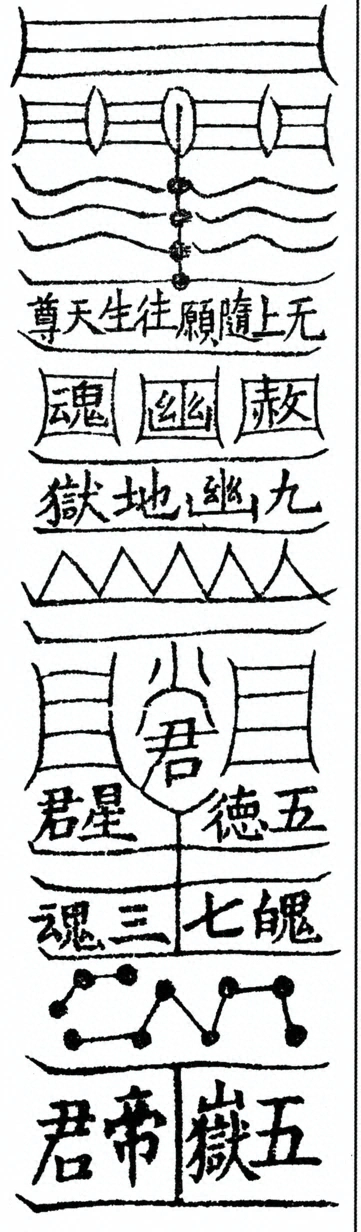 无上隨願往生天尊
赦幽魂
九幽地獄
君
五德星君
魄七三魂
五嶽帝君